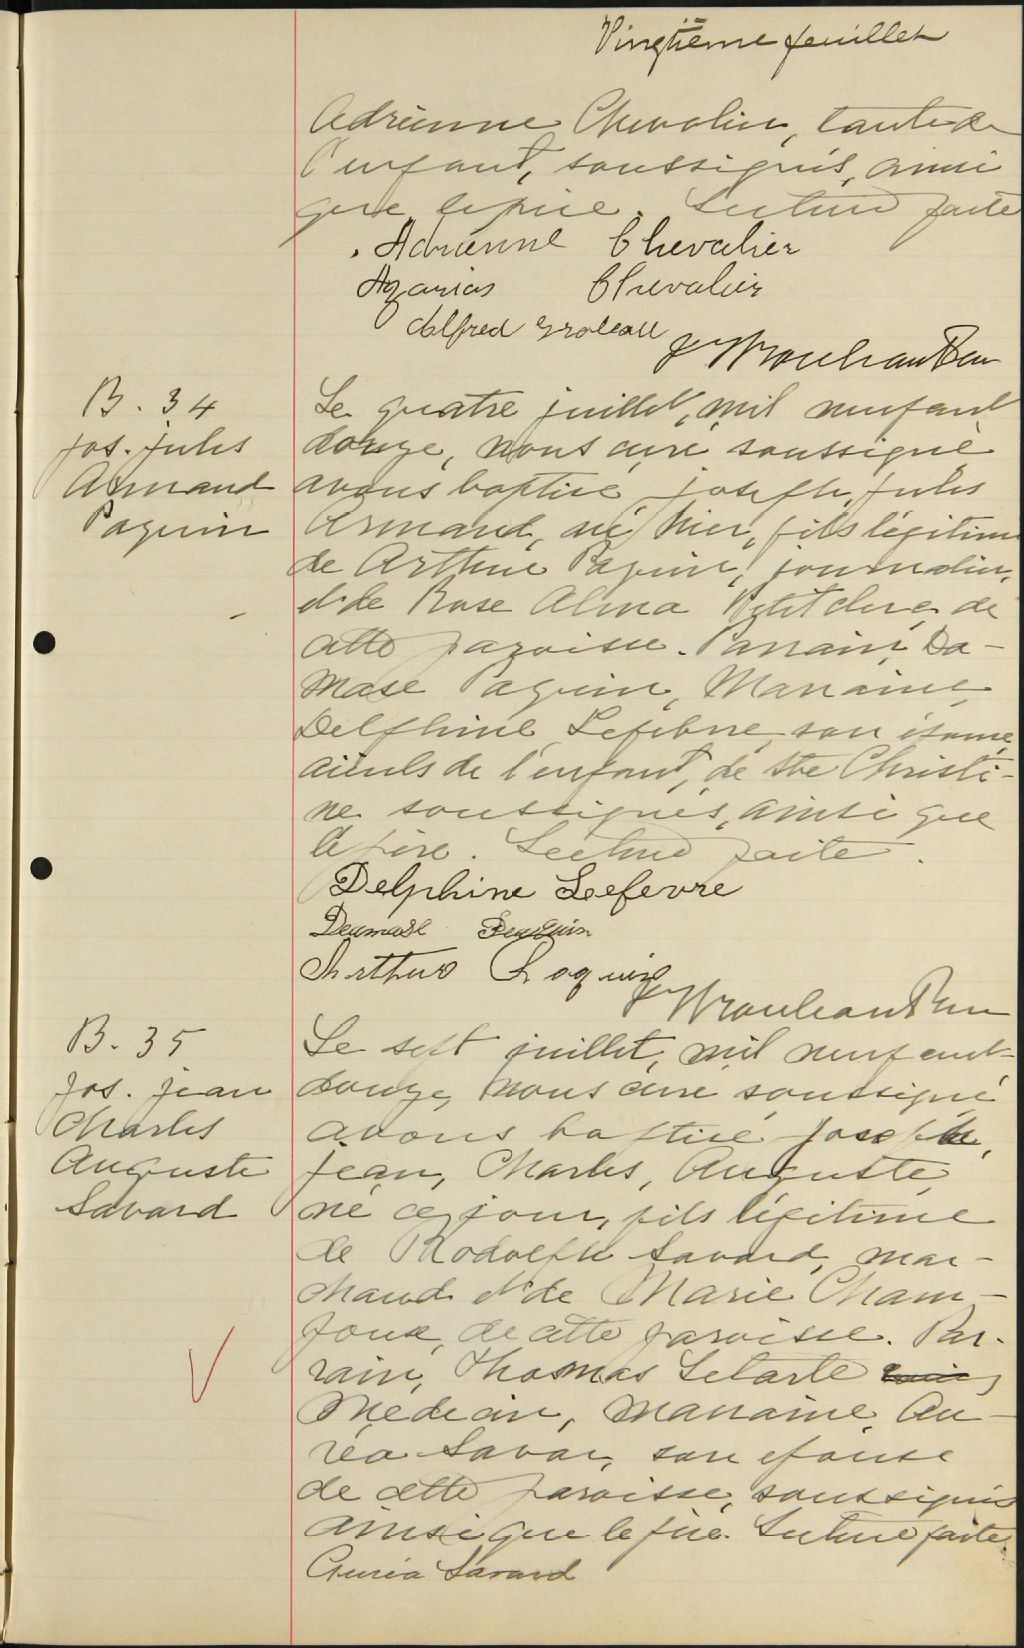 Vingtième feuillet
Adrienne Chevalier, tante de
l'enfant, soussignés, ainsi
que le père. Lecture faite
Adrienne Chevalier
Azarias Chevalier
Alfred Groleau
B. 34
Jos. Jules
Armand
Paquin
Le quatre juillet, mil neuf cent
douze, nous curé soussigné
avons baptisé Joseph, Jules
Armand, né hier, fils légitime
de Arthur Paquin, journalier,
et de Rose Alma Petitclerc de
cette paroisse. Parrain, Da-
mase Paquin, Marraine,
Delphine Lefebvre, son épouse
aïeuls de l'enfant, de Ste Christi-
ne soussignés, ainsi que
le père. Lecture faite.
Delphine Leefevre
Deamase Peaquin
Arthur Paquin
B. 35
Jos. Jean
Charles
Auguste
Savard
Le sept juillet, mil neuf cent-
douze, nous curé soussigné
avons baptisé Joseph,
Jean, Charles, Auguste,
né ce jour, fils légitime
de Rodolphe Savard, mar-
chand et de Marie Cham-
foux, de cette paroisse. Par-
rain, Thomas Letarte
Médecin, Marraine, Au-
réa Savar, son épouse
de cette paroisse, soussignés
ainsi que le père. Lecture faite.
Auréa Savard